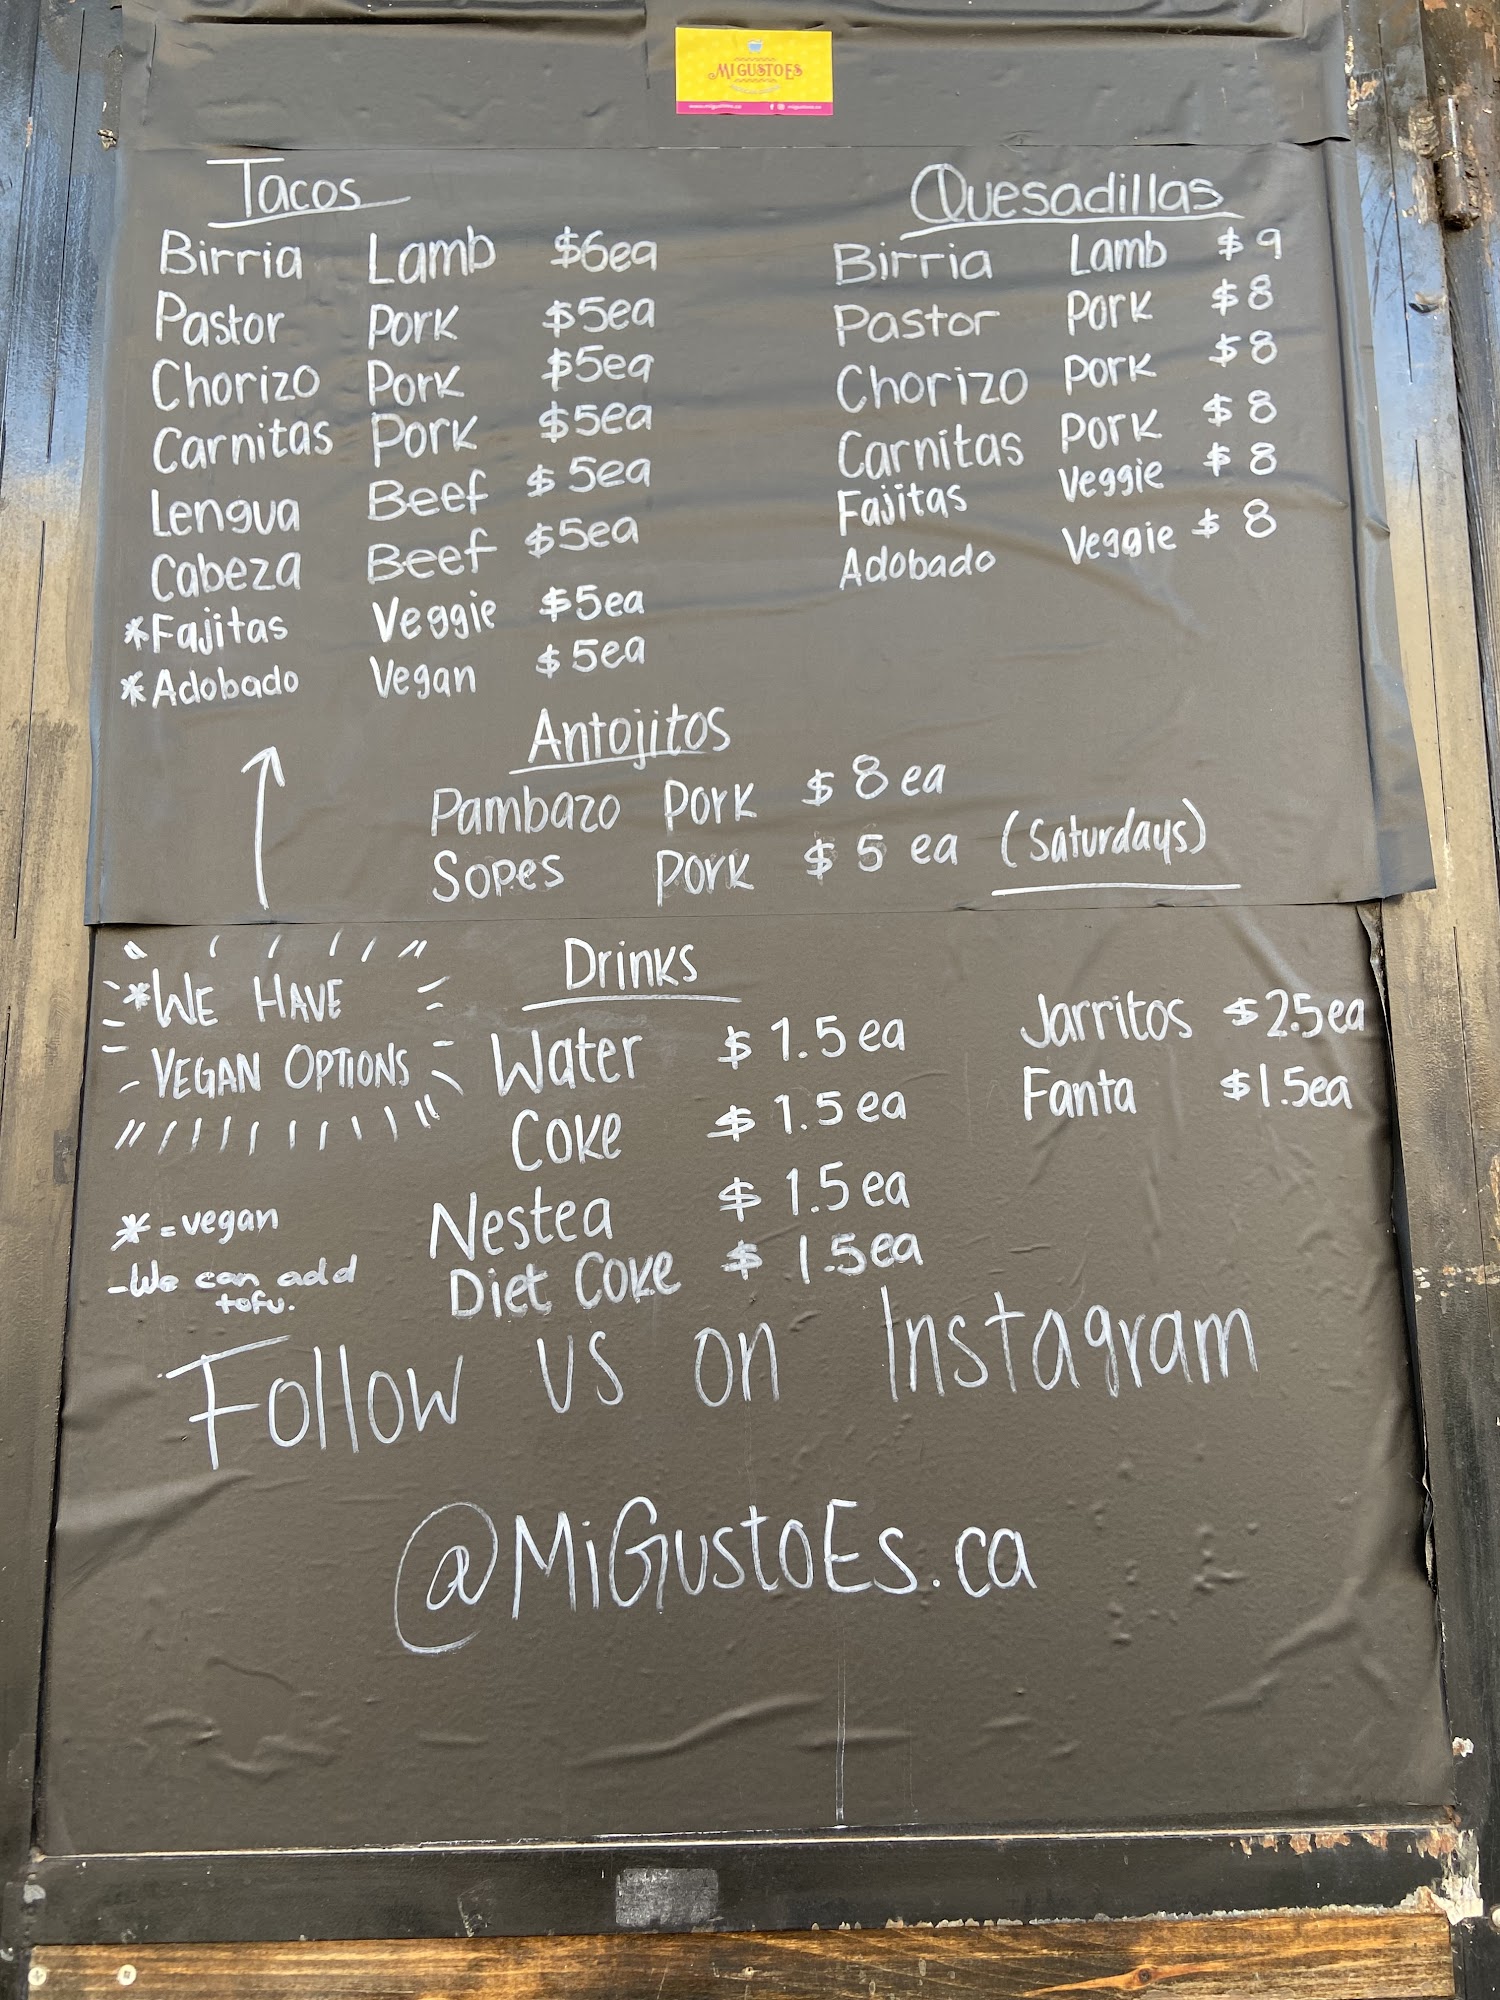 MI GUSTO ES
Tacos
Birria Lamb $6ea
Pastor Pork $5ea
Chorizo Pork $5ea
Carnitas Pork $5ea
Lengua Beef $5ea
Cabeza Beef $5ea
*Fajitas Veggie $5ea
*Adobado Vegan $5ea
Quesadillas
Birria Lamb $9
Pastor Pork $8
Chorizo Pork $8
Carnitas Pork $8
Fajitas Veggie $8
Adobado Veggie $8
Antojitos
Pambazo Pork $8ea
Sopes Pork $5 ea (Saturdays)
*WE HAVE
VEGAN OPTIONS
*=vegan
-We can add
tofu.
Drinks
Water $1.5ea
Coke $1.5ea
Nestea $1.5ea
Diet Coke $1.5ea
Jarritos $2.5ea
Fanta $1.5ea
Follow us on Instagram
@MiGustoEs.ca